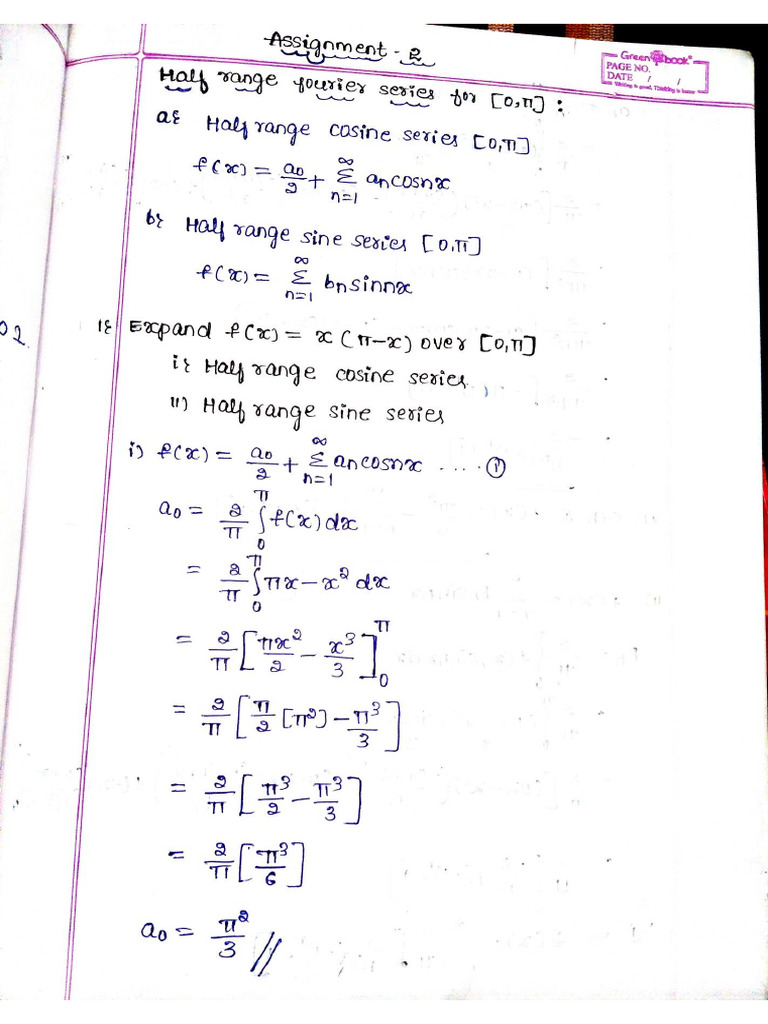 Assignment - 2
GreenBook®
PAGE NO.
DATE / /
Writing is good, Thinking is better
Half range fourier series for [0,π] :
a} Half range cosine series [0,π]
f(x) = a0/2 + ∞Σn=1 an cosnx
b} Half range sine series [0,π]
f(x) = ∞Σn=1 bn sinnx
02
1} Expand f(x) = x(π-x) over [0,π]
i} Half range cosine series
ii) Half range sine series
i) f(x) = a0/2 + ∞Σn=1 an cosnx .... ①
a0 = 2/π ∫0^π f(x) dx
= 2/π ∫0^π πx - x² dx
= 2/π [πx²/2 - x³/3]0^π
= 2/π [π/2 [π²] - π³/3]
= 2/π [π³/2 - π³/3]
= 2/π [π³/6]
a0 = π²/3 //